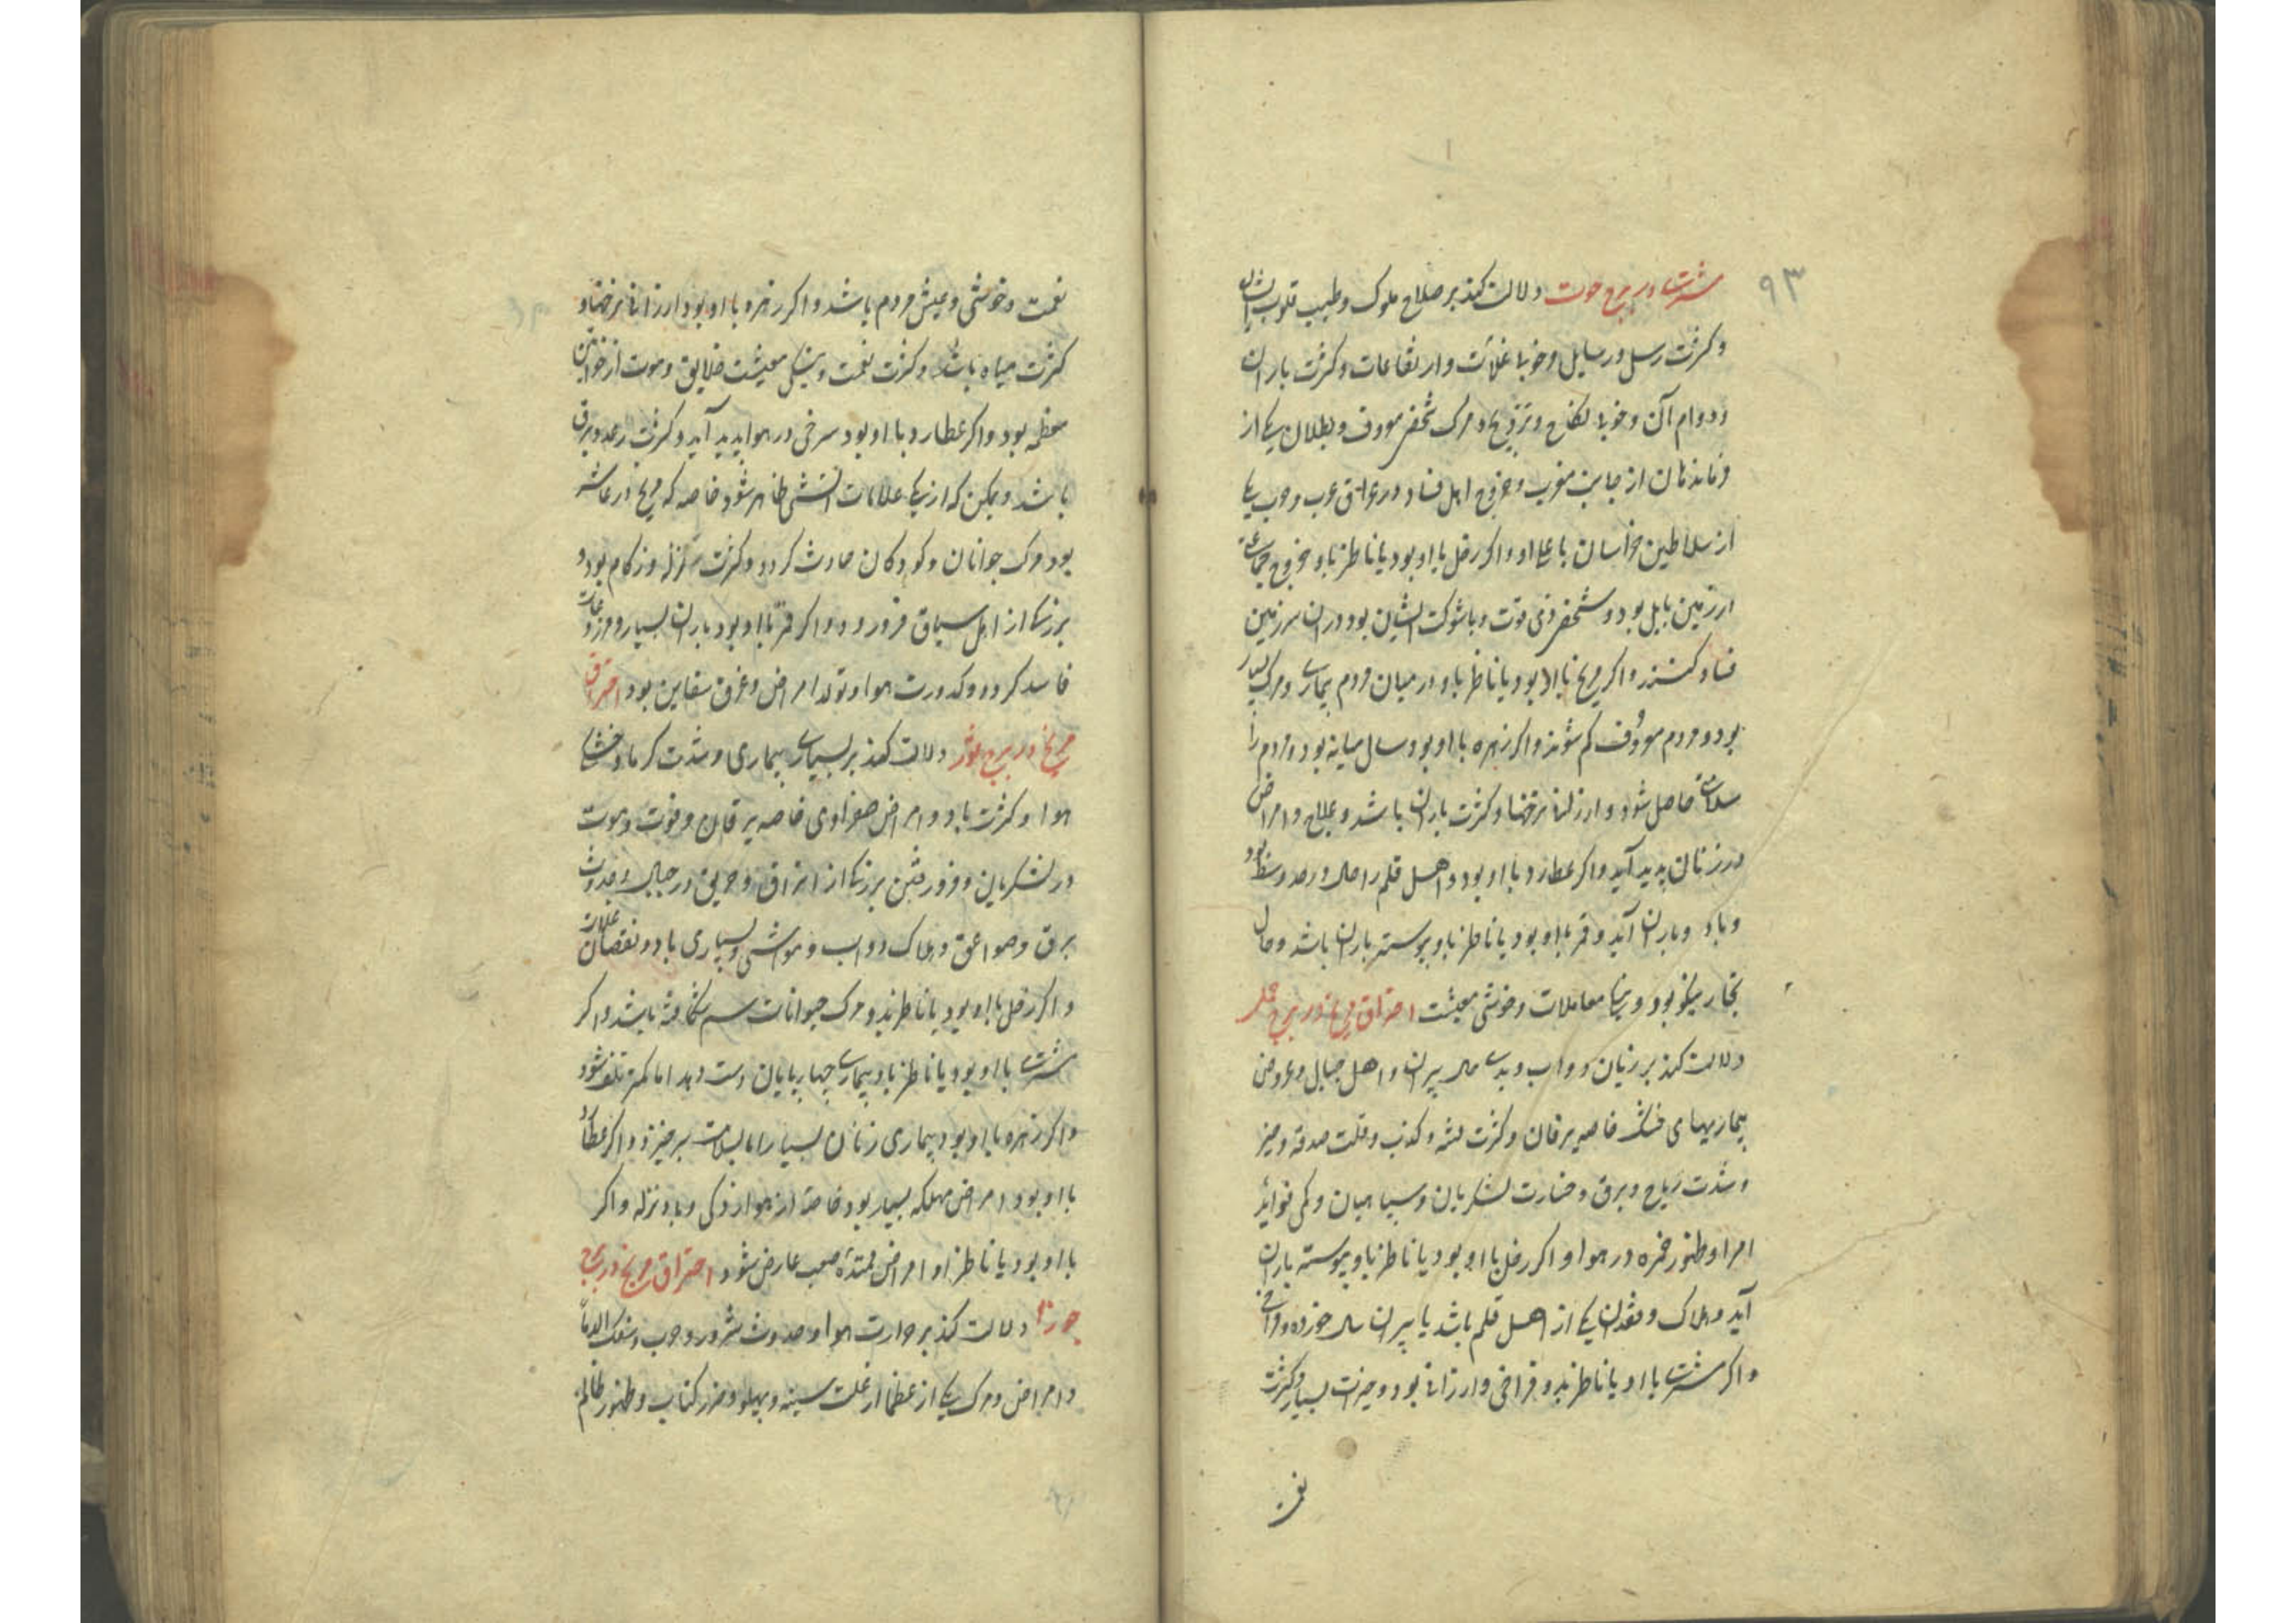 ۹۳
مشتری در برج حوت دلالت کند بر صلاح ملوک و طیب قلوب ایشان
و کثرت رسل و رسایل و خوبی غلات و ارتفاعات و کثرت باران
و دوام آن و خوبی نکاح و تزویج و مرک شخص معروف و بطلان یکی از
فرماندهان از جانب مغرب و خروج اهل فساد در عراق عرب و حرب یکی
از سلاطین خراسان با عدا او و اکر زحل با او بود یا ناظر باو خروج جماعتی
از زمین بابل بود و شخص ذی قوت و با شوکت ایشان بود در آن سرزمین
فساد کنند و اکر مریخ با او بود یا ناظر باو در میان مردم بیماری و مرک بسیار
بود و مردم معروف کم شوند و اکر زهره با او بود سال میانه بود و مردم را
سلامتی حاصل شود و ارزانی نرخها و کثرت باران باشد و امراض
در زنان پدید آید و اکر عطارد با او بود و اهل قلم را حال در حد وسط بود
و باد و باران آید و قمر با او بود یا ناظر باو پیوسته باران باشد و حال
تجار نیکو بود و معاملات و خوشی معیشت احتراق مریخ در برج حمل
دلالت کند بر زیان دواب و بدی حال پیران و اهل جبال و عروض
بیماریهای خشک خاصه یرقان و کثرت فتنه و کذب و قلت صدقه و خیر
و شدت ریاح و برق و خسارت لشکریان و سپاهیان و کمی فواید
امرا و ظهور حمره در هوا و اکر زحل با او بود یا ناظر باو پیوسته باران
آید و هلاک و فقدان یکی از اهل قلم باشد یا پیران سال خورده
و اکر مشتری با او یا ناظر بدو فراخی و ارزانی بود و خیرات بسیار و کثرت
نعمت
نعمت و خوشی و عیش مردم باشد و اکر زهره با او بود ارزانی نرخها و
کثرت میاه باشد و کثرت نعمت و نیکی معیشت خلایق و موت از خواتین
معظمه بود و اکر عطارد با او بود سرخی در هوا پدید آید و کثرت رعد و برق
باشد و یمکن که از یکی علامات آتشی ظاهر شود خاصه که مریخ در عاشر
بود مرک جوانان و کودکان حادث کردد و کثرت نزله و زکام بود و
بزرکی از اهل سیاق فرو رود و اکر قمر با او بود باران بسیار و
فاسد کردد و کدورت هوا و تولد امراض و غرق سفاین بود احتراق
مریخ در برج ثور دلالت کند بر بسیاری بیماری و شدت کرما و خشکی
هوا و کثرت باد و امراض صفراوی خاصه یرقان و فوت و موت
در لشکریان و فرو رفتن بزرکی از اتراق و حریق در جبال و حدوث
برق و صواعق و هلاک دواب و مواشی و بسیاری باد و نقصان غلات
و اکر زحل با او بود یا ناظر بدو مرک حیوانات سم شکافته باشد و اکر
مشتری با او بود یا ناظر باو بیماری چهارپایان دست دهد اما کمتر تلف شود
و اکر زهره با او بود بیماری زنان بسیار اما بسلامت برخیزند و اکر عطارد
با او بود امراض مهلکه بسیار بود خاصة از هوا زدکی و باد و نزله و اکر
با او بود یا ناظر او امراض ممتده صعب عارض شود احتراق مریخ در برج
جوزا دلالت کند بر حرارت هوا و حدوث شرور و حرب و سفک الدما
و امراض و مرک یکی از عظما از علت سینه و پهلو و ضرر کتاب و ظهور ظالم